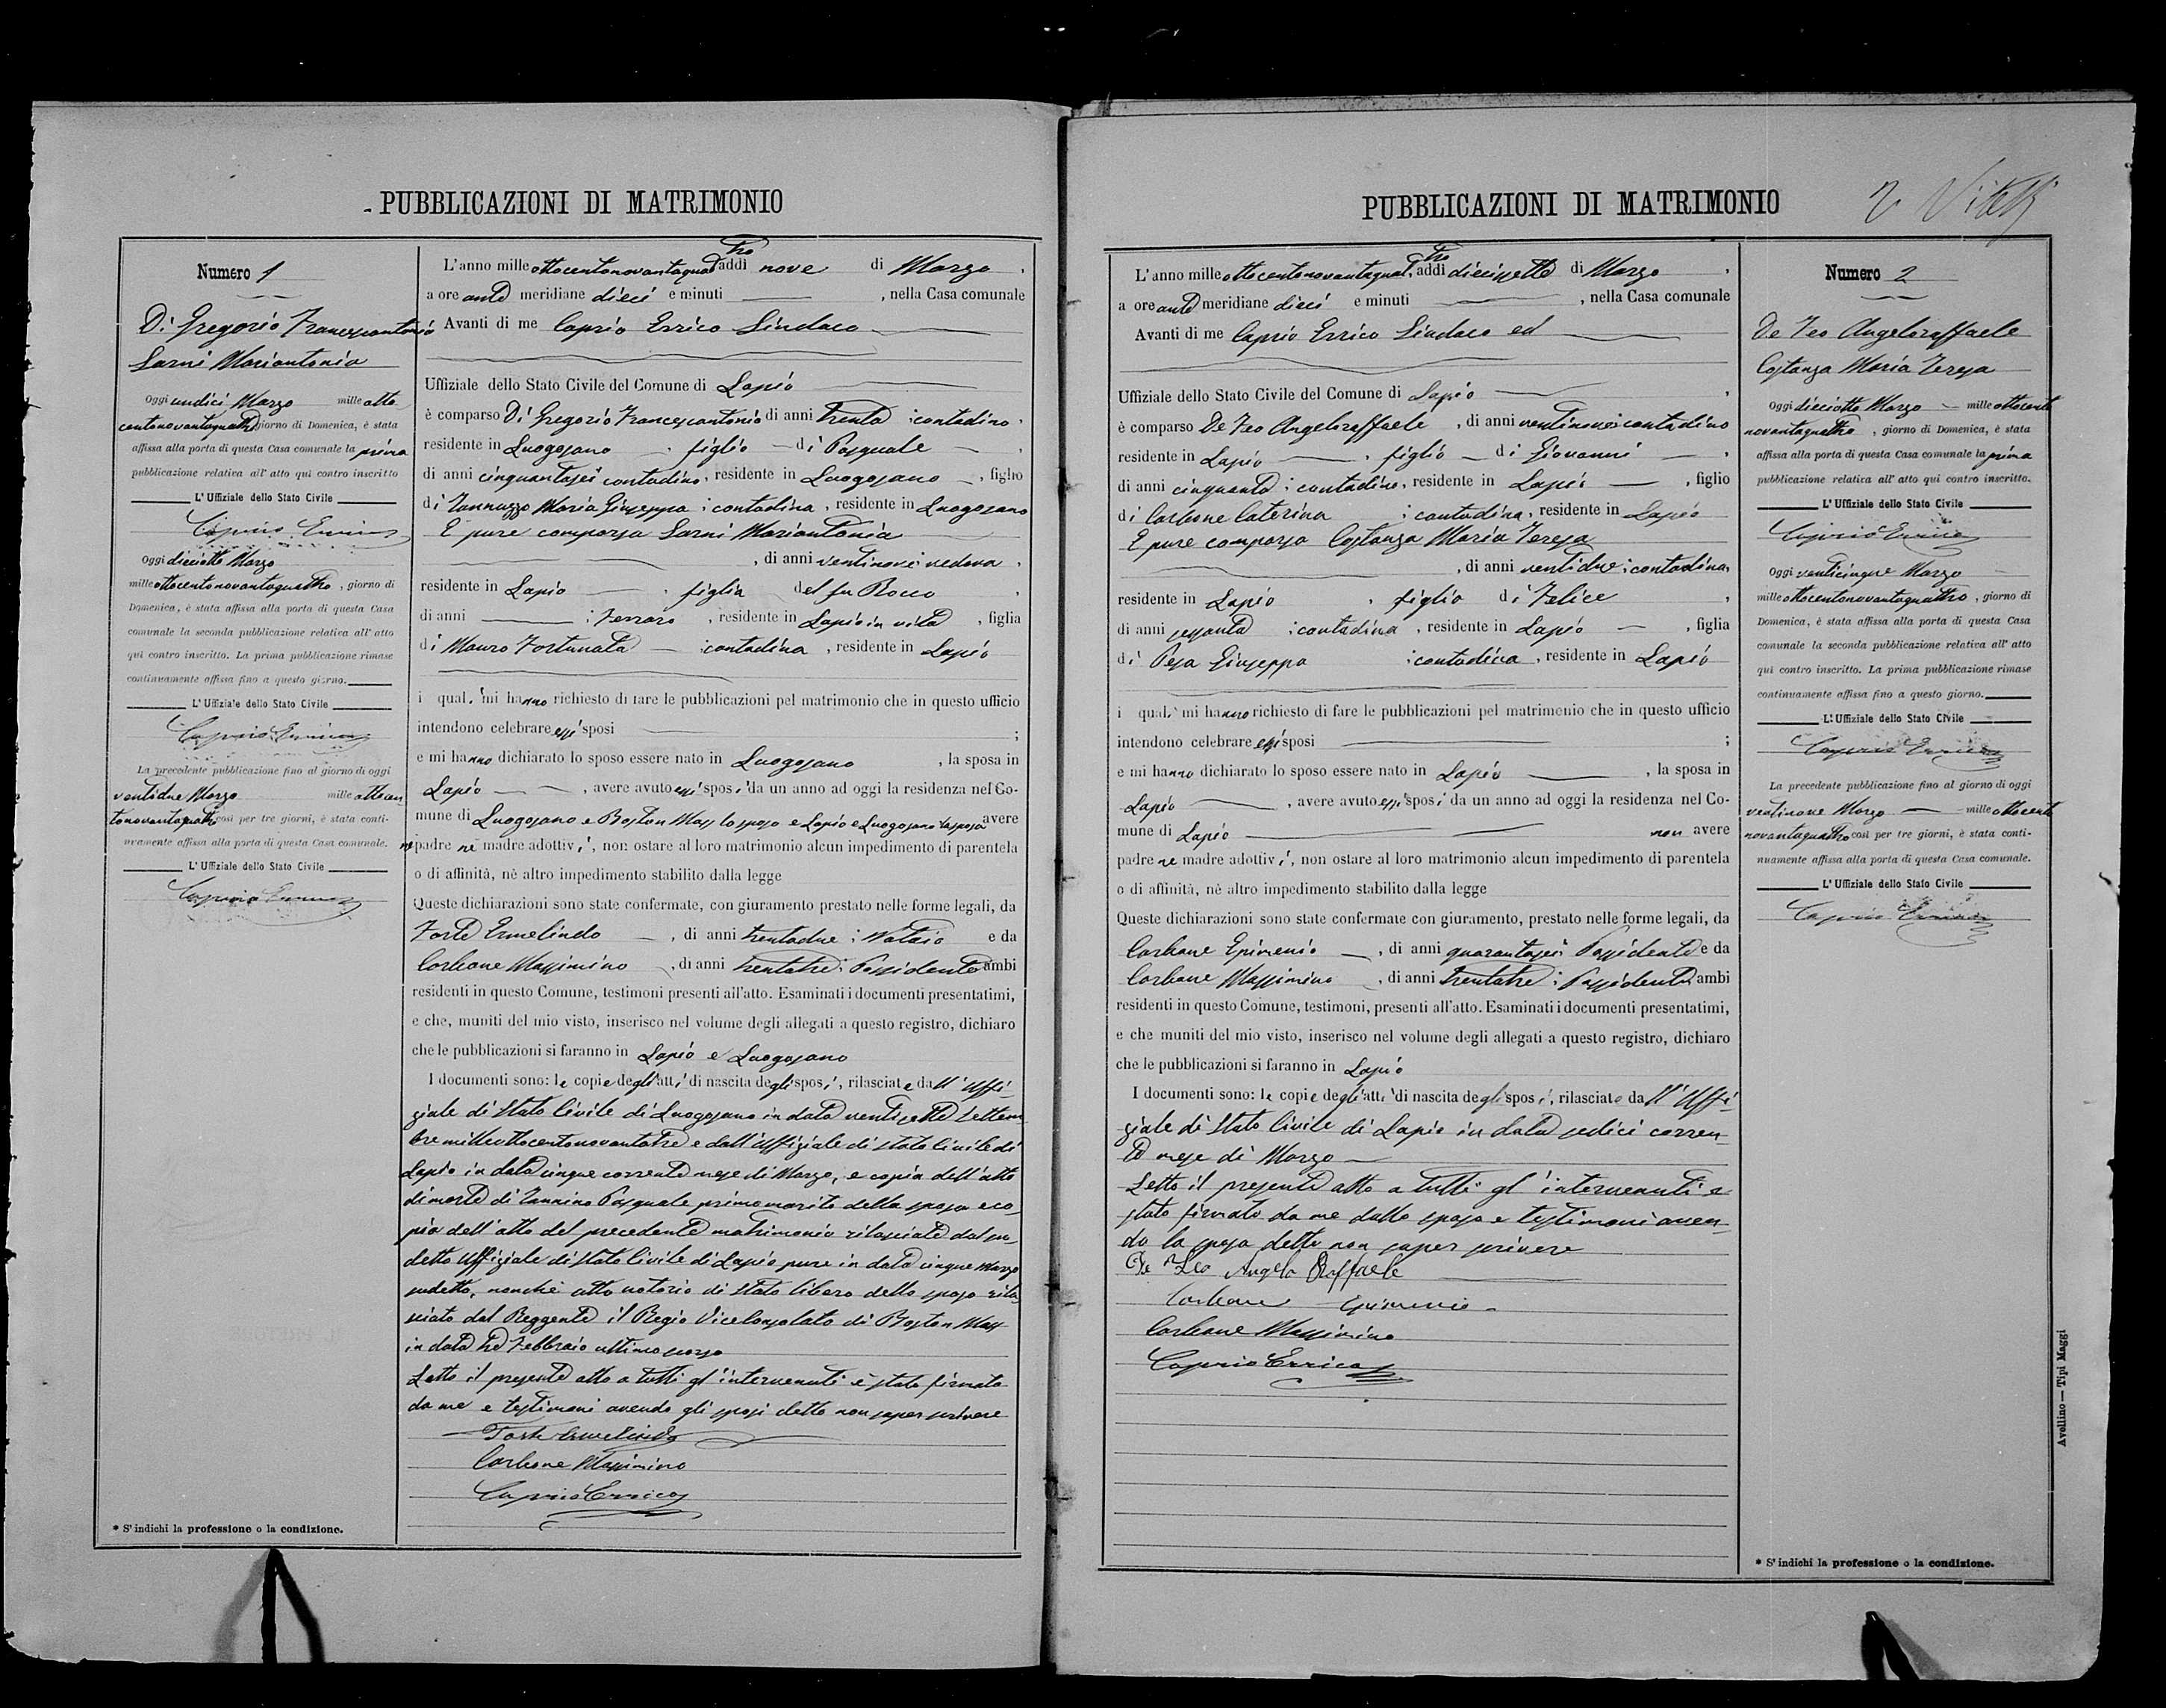 PUBBLICAZIONI DI MATRIMONIO
Numero 1
Di Gregorio Francescantonio
Sarni Mariantonia
Oggi undici Marzo mille otto
centonovantaquattro giorno di Domenica, è stata
affissa alla porta di questa Casa comunale la prima
pubblicazione relativa all' atto qui contro inscritto
L' Uffiziale dello Stato Civile
Caprio Errico
Oggi dieciotto Marzo
mille ottocentonovantaquattro, giorno di
Domenica, è stata affissa alla porta di questa Casa
comunale la seconda pubblicazione relativa all' atto
qui contro inscritto. La prima pubblicazione rimase
continuamente affissa fino a questo giorno.
L' Uffiziale dello Stato Civile
Caprio Errico
La precedente pubblicazione fino al giorno di oggi
ventidue Marzo mille ottocen
tonovantaquattro così per tre giorni, è stata conti-
nuamente affissa alla porta di questa Casa comunale.
L' Uffiziale dello Stato Civile
Caprio Errico
* S' indichi la professione o la condizione.
L'anno mille ottocentonovantaquattro, addì nove di Marzo,
a ore ante meridiane dieci e minuti , nella Casa comunale
Avanti di me Caprio Errico Sindaco
Uffiziale dello Stato Civile del Comune di Lapio
è comparso Di Gregorio Francescantonio di anni trenta : contadino,
residente in Luogosano , figlio di Pasquale ,
di anni cinquantasei contadino, residente in Luogosano , figlio
di Iannuzzo Maria Giuseppa : contadina, residente in Luogosano
E pure comparsa Sarni Mariantonia
, di anni ventinove : vedova,
residente in Lapio , figlia del fu Rocco ,
di anni : Ferraro , residente in Lapio in vita , figlia
di Mauro Fortunata : contadina , residente in Lapio
i quali mi hanno richiesto di fare le pubblicazioni pel matrimonio che in questo ufficio
intendono celebrare essi sposi ;
e mi hanno dichiarato lo sposo essere nato in Luogosano , la sposa in
Lapio , avere avuto essi sposi da un anno ad oggi la residenza nel Co-
mune di Luogosano e Boston Mass lo sposo e Lapio e Luogosano la sposa avere
nè padre nè madre adottivi, non ostare al loro matrimonio alcun impedimento di parentela
o di affinità, nè altro impedimento stabilito dalla legge
Queste dichiarazioni sono state confermate, con giuramento prestato nelle forme legali, da
Forte Ermelindo , di anni trentadue : Notaio e da
Carbone Massimino , di anni trentatre : Possidente ambi
residenti in questo Comune, testimoni presenti all'atto. Esaminati i documenti presentatimi,
e che, muniti del mio visto, inserisco nel volume degli allegati a questo registro, dichiaro
che le pubblicazioni si faranno in Lapio e Luogosano
I documenti sono: le copie degli atti di nascita degli sposi, rilasciate dall' Uffi-
ziale di Stato Civile di Luogosano in data ventisette Settem
bre milleottocentonovantatre e dall'Uffiziale di Stato Civile di
Lapio in data cinque corrente mese di Marzo, e copia dell'atto
di morte di Iannino Pasquale primo marito della sposa e co-
pia dell'atto del precedente matrimonio rilasciate dal su-
detto Uffiziale di Stato Civile di Lapio pure in data cinque Marzo
sudetto, nonchè atto notorio di Stato libero dello sposo rila
sciato dal Reggente il Regio Viceconsolato di Boston Mass
in data tre Febbraio ultimo scorso
Letto il presente atto a tutti gl'intervenuti è stato firmato
da me e testimoni avendo gli sposi detto non saper scrivere
Forte Ermelindo
Carbone Massimino
Caprio Errico
PUBBLICAZIONI DI MATRIMONIO
L'anno mille ottocentonovantaquattro, addì diecissette di Marzo ,
a ore ante meridiane dieci e minuti , nella Casa comunale
Avanti di me Caprio Errico Sindaco ed
Uffiziale dello Stato Civile del Comune di Lapio ,
è comparso De Feo Angeloraffaele , di anni ventinove : contadino
residente in Lapio , figlio di Giovanni ,
di anni cinquanta : contadino, residente in Lapio , figlio
di Carbone Caterina : contadina, residente in Lapio
E pure comparsa Costanza Maria Teresa
, di anni ventidue : contadina,
residente in Lapio , figlia di Felice ,
di anni sessanta : contadina , residente in Lapio , figlia
di Pesa Giuseppa : contadina , residente in Lapio
i quali mi hanno richiesto di fare le pubblicazioni pel matrimonio che in questo ufficio
intendono celebrare essi sposi ;
e mi hanno dichiarato lo sposo essere nato in Lapio , la sposa in
Lapio , avere avuto essi sposi da un anno ad oggi la residenza nel Co-
mune di Lapio non avere
padre nè madre adottivi, non ostare al loro matrimonio alcun impedimento di parentela
o di affinità, nè altro impedimento stabilito dalla legge
Queste dichiarazioni sono state confermate con giuramento, prestato nelle forme legali, da
Carbone Epimenio , di anni quarantasei Possidente e da
Carbone Massimino , di anni trentatre : Possidente ambi
residenti in questo Comune, testimoni, presenti all'atto. Esaminati i documenti presentatimi,
e che muniti del mio visto, inserisco nel volume degli allegati a questo registro, dichiaro
che le pubblicazioni si faranno in Lapio
I documenti sono: le copie degli atti di nascita degli sposi, rilasciate dall' Uffi-
ziale di Stato Civile di Lapio in data sedici corren-
te mese di Marzo
Letto il presente atto a tutti gl'intervenuti è
stato firmato da me dallo sposo e testimoni aven-
do la sposa detto non saper scrivere
De Feo Angelo Raffaele
Carbone Epimenio
Carbone Massimino
Caprio Errico
Numero 2
De Feo Angeloraffaele
Costanza Maria Teresa
Oggi dieciotto Marzo mille ottocento
novantaquattro , giorno di Domenica, è stata
affissa alla porta di questa Casa comunale la prima
pubblicazione relativa all' atto qui contro inscritto.
L' Uffiziale dello Stato Civile
Caprio Errico
Oggi venticinque Marzo
mille ottocentonovantaquattro, giorno di
Domenica, è stata affissa alla porta di questa Casa
comunale la seconda pubblicazione relativa all' atto
qui contro inscritto. La prima pubblicazione rimase
continuamente affissa fino a questo giorno.
L' Uffiziale dello Stato Civile
Caprio Errico
La precedente pubblicazione fino al giorno di oggi
ventinove Marzo mille ottocento
novantaquattro così per tre giorni, è stata conti-
nuamente affissa alla porta di questa Casa comunale.
L' Uffiziale dello Stato Civile
Caprio Errico
* S' indichi la professione o la condizione.
Avellino — Tipi Maggi